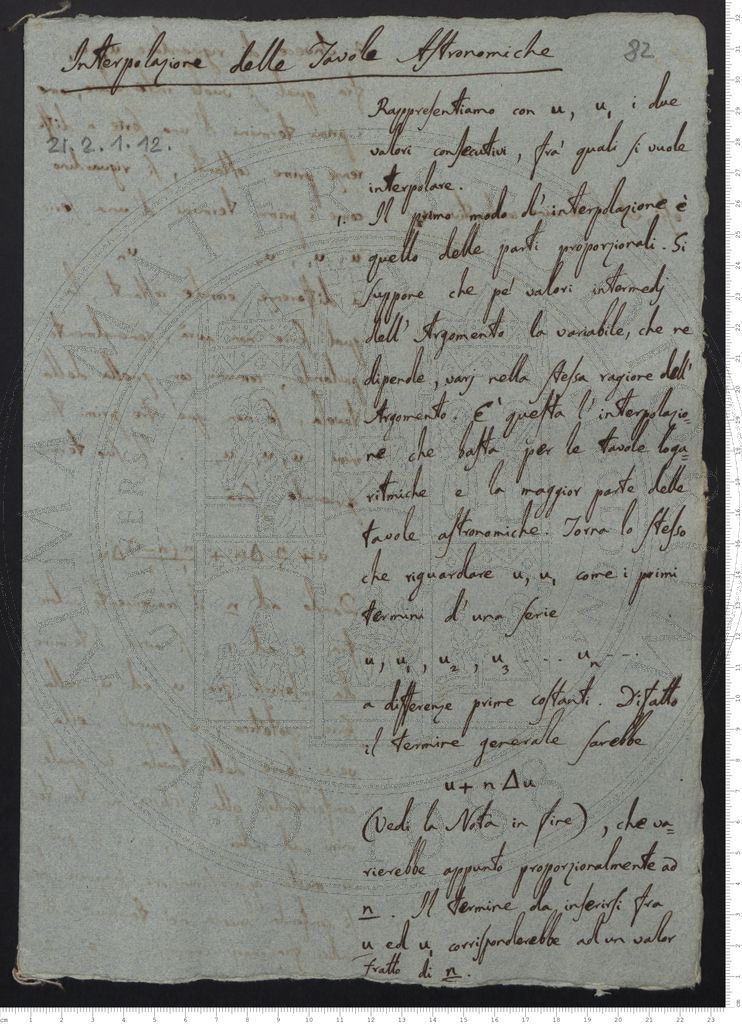 Interpolazione delle Tavole Astronomiche
82
21. 2. 1. 12.
Rappresentiamo con u, u₁ i due
valori consecutivi, fra' quali si vuole
interpolare.
1. Il primo modo d'interpolazione è
quello delle parti proporzionali. Si
suppone che pe' valori intermedj
dell' Argomento la variabile, che ne
dipende, varj nella stessa ragione dell'
Argomento. E' questa l' interpolazio=
ne che basta per le tavole loga=
ritmiche e la maggior parte delle
tavole astronomiche. Torna lo stesso
che riguardare u, u₁ come i primi
termini d' una serie
u, u₁, u₂, u₃ - - - uₙ - - -
a differenze prime costanti. Difatto
il termine generale sarebbe
u + n Δu
(Vedi la Nota in fine), che va=
rierebbe appunto proporzionalmente ad
n. Il termine da inserirsi fra
u ed u₁ corrisponderebbe ad un valor
fratto di n.